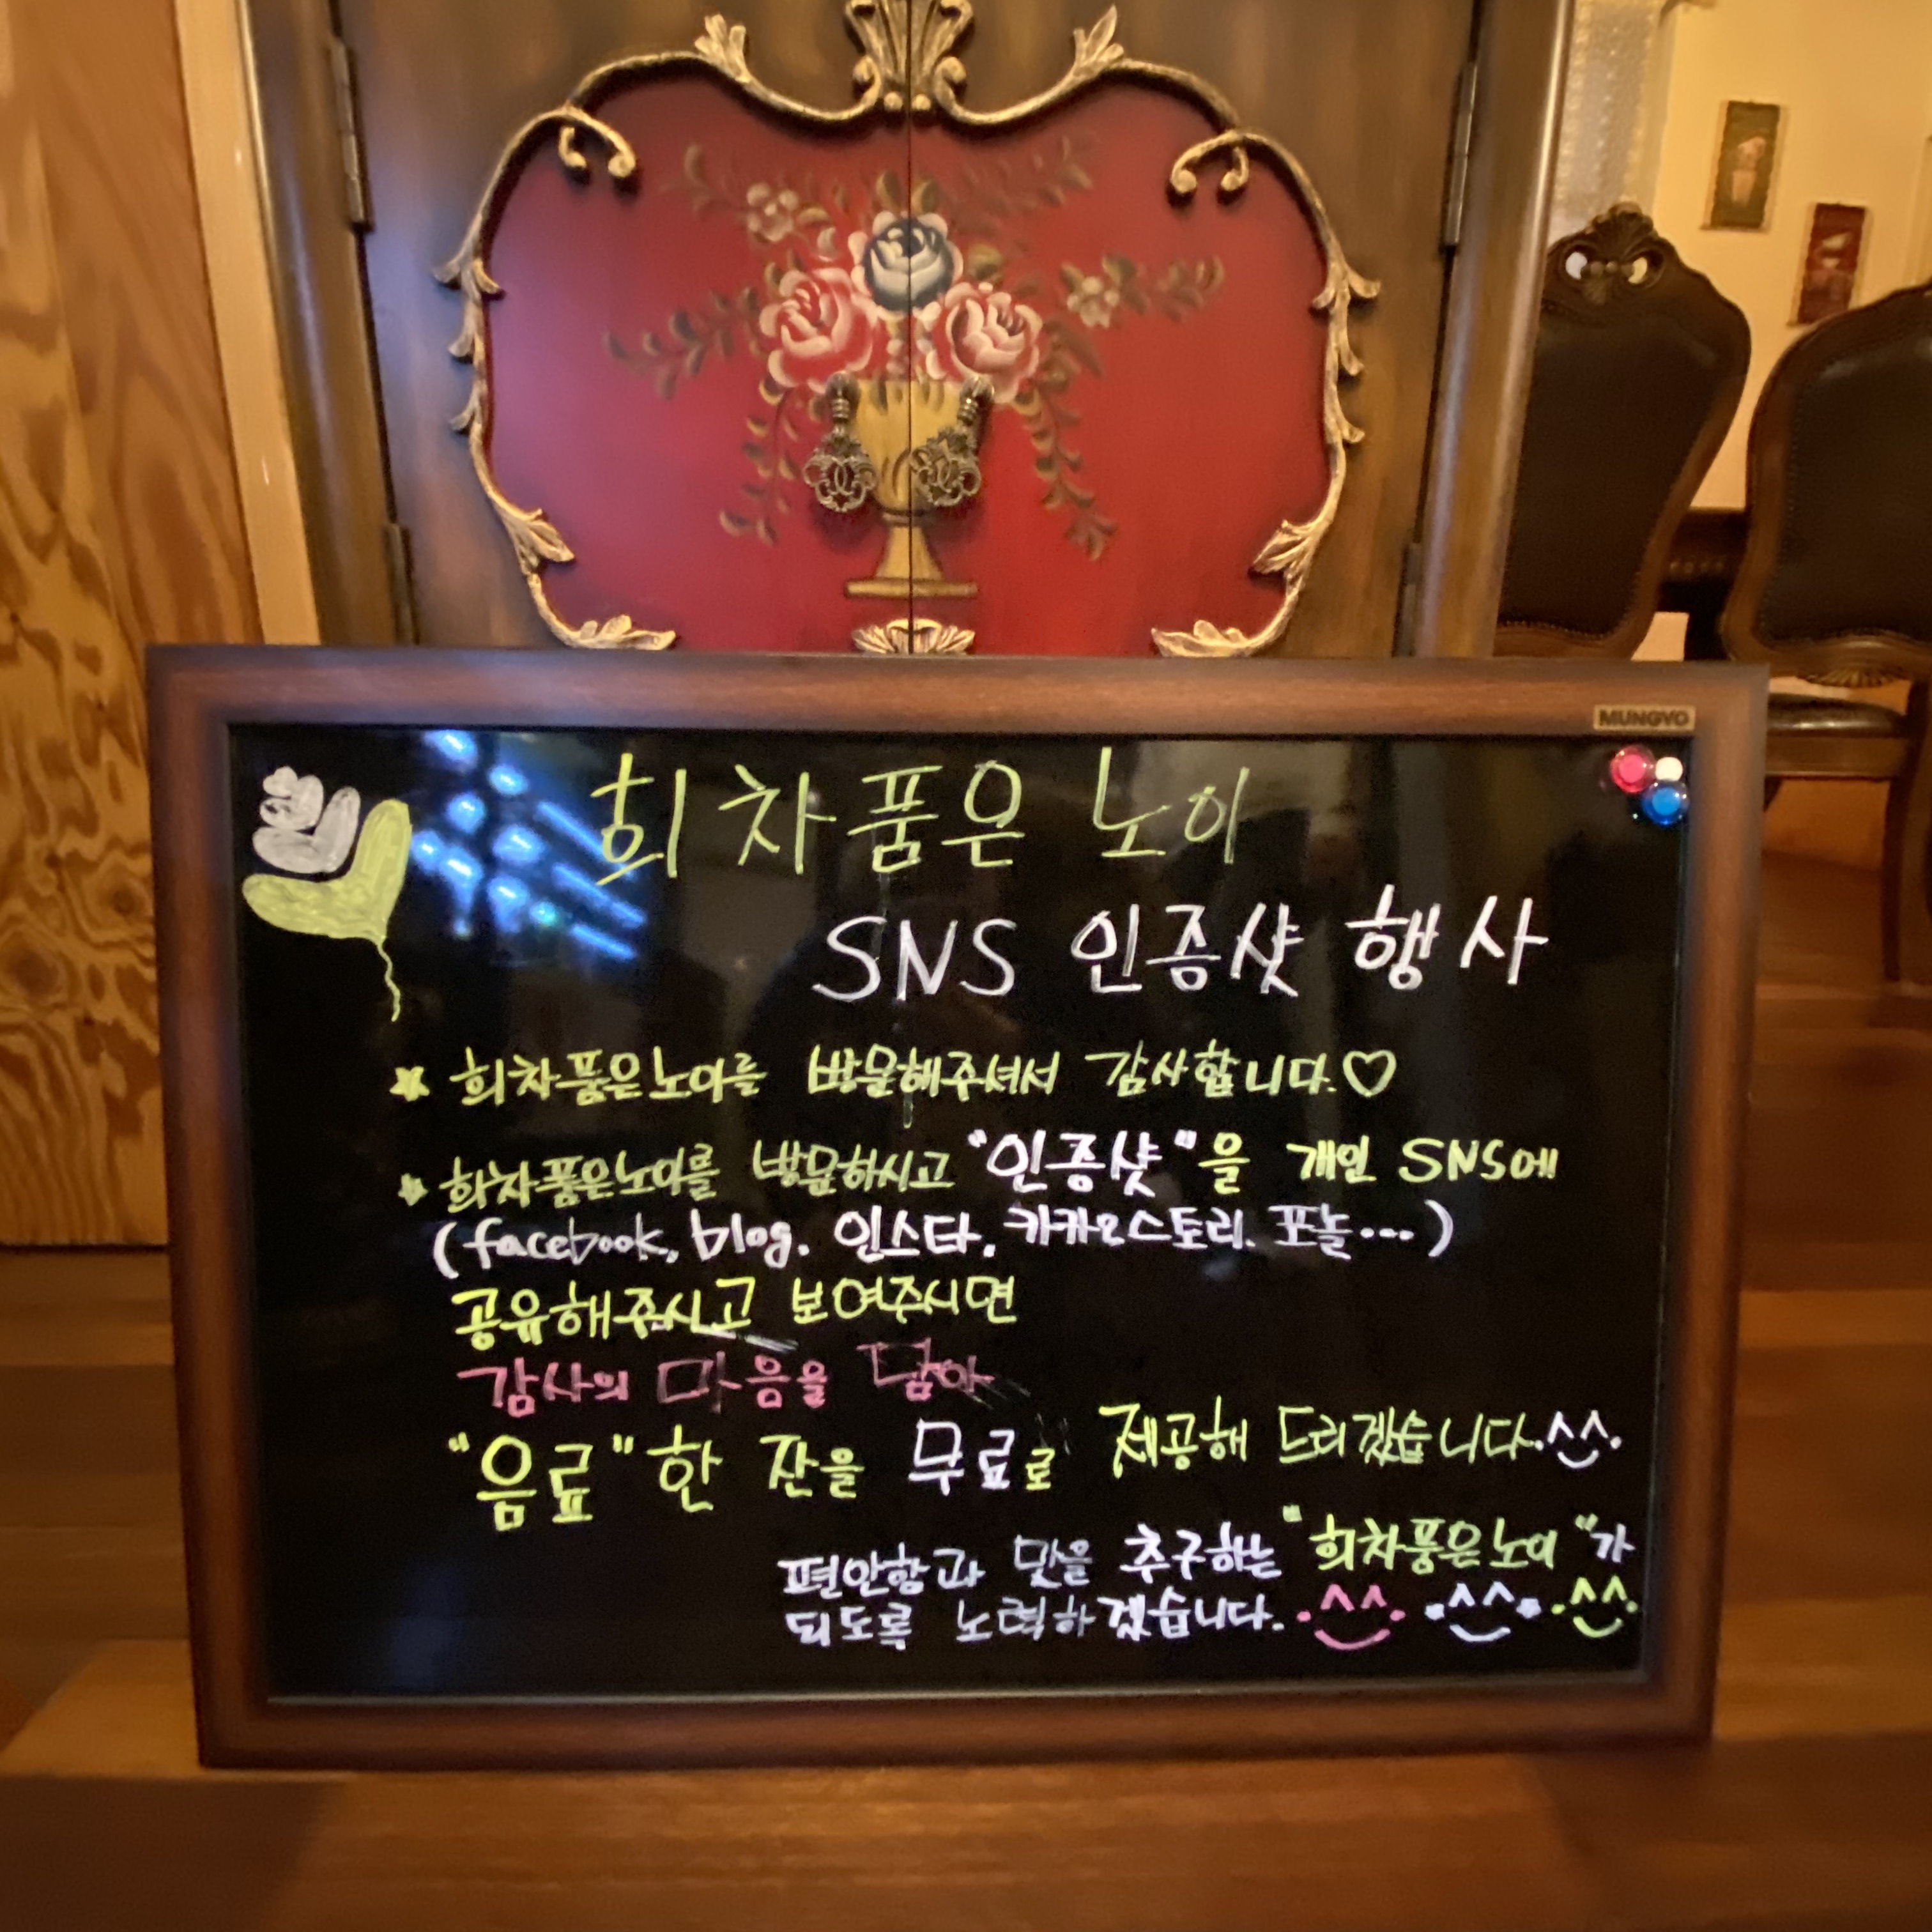 MUNGYO
희차품은 노이
SNS 인증샷 행사
희차품은노이를 방문해주셔서 감사합니다.♡
희차품은노이를 방문하시고 "인증샷"을 개인 SNS에
(facebook, blog. 인스타. 카카오스토리. 포놀...)
공유해주시고 보여주시면
감사의 마음을 담아
"음료" 한 잔을 무료로 제공해 드리겠습니다.^^
편안함과 맛을 추구하는 "희차품은노이"가
되도록 노력하겠습니다. ^^ ^^ ^^